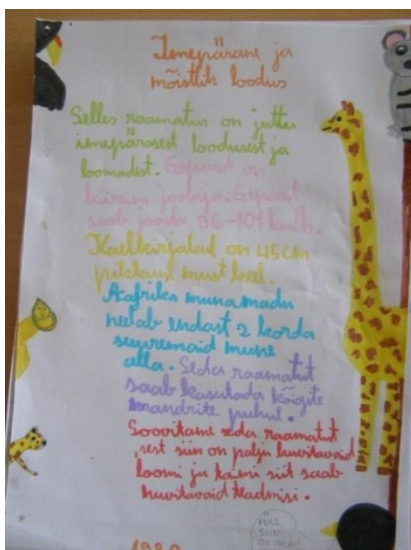 Imepärane ja
mõistlik loodus
Selles raamatus on juttu
imepärasest loodusest ja
loomadest. Gepard on
kiireim jooksja. Gepard
saab joosta 96-101 km/h.
Kaelkirjakul on 45 cm
pikkune must keel.
Aafrika munamadu
neelab endast 2 korda
suuremaid mune
alla. Seda raamatut
saab kasutada kõigite
mandrite puhul.
Soovitame seda raamatut
, sest siin on palju huvitavaid
loomi ja ka siit saab
huvitavaid teadmisi.
KÜLL
SIIN
ON